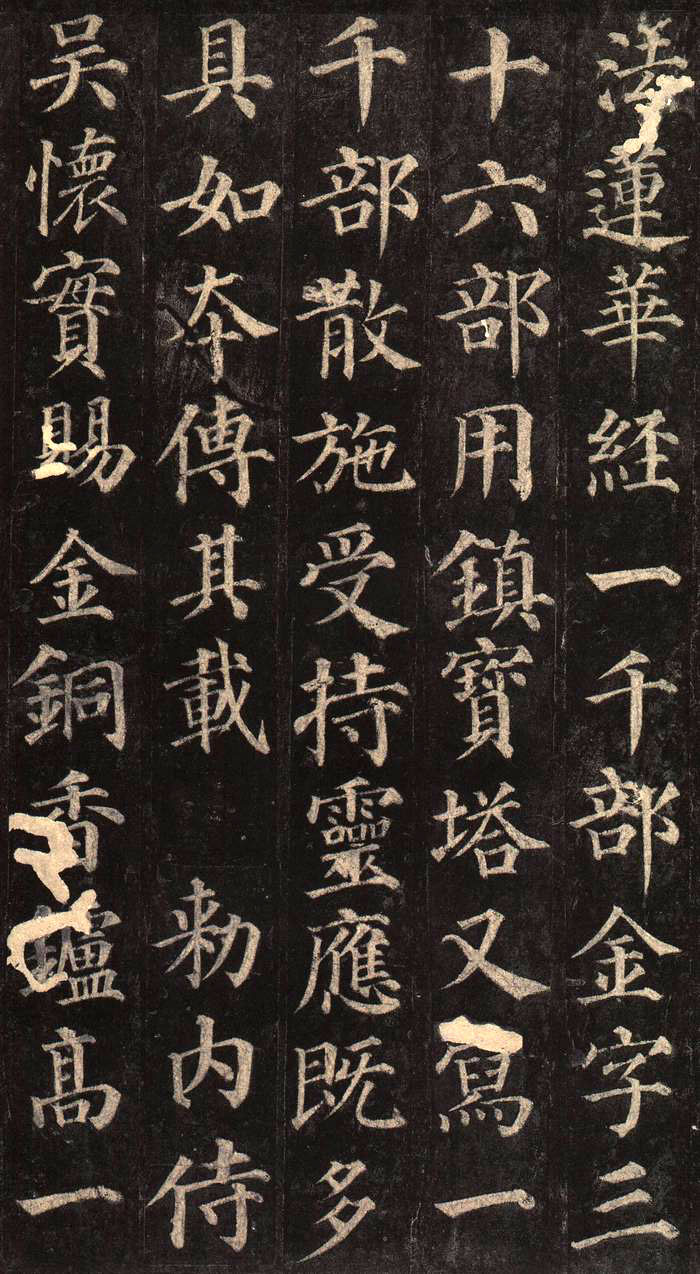 法蓮華經一千部金字三
十六部用鎮寶塔又寫一
千部散施受持靈應既多
具如本傳其載 勑内侍
吳懷實賜金銅香鑪高一